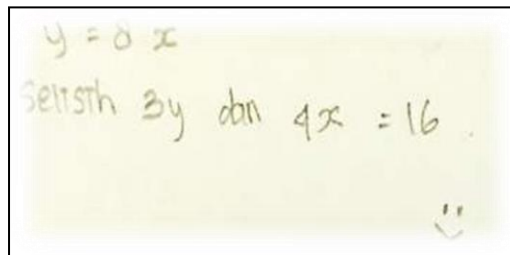 y = 8 x
Selisih 3y dan 4x = 16.